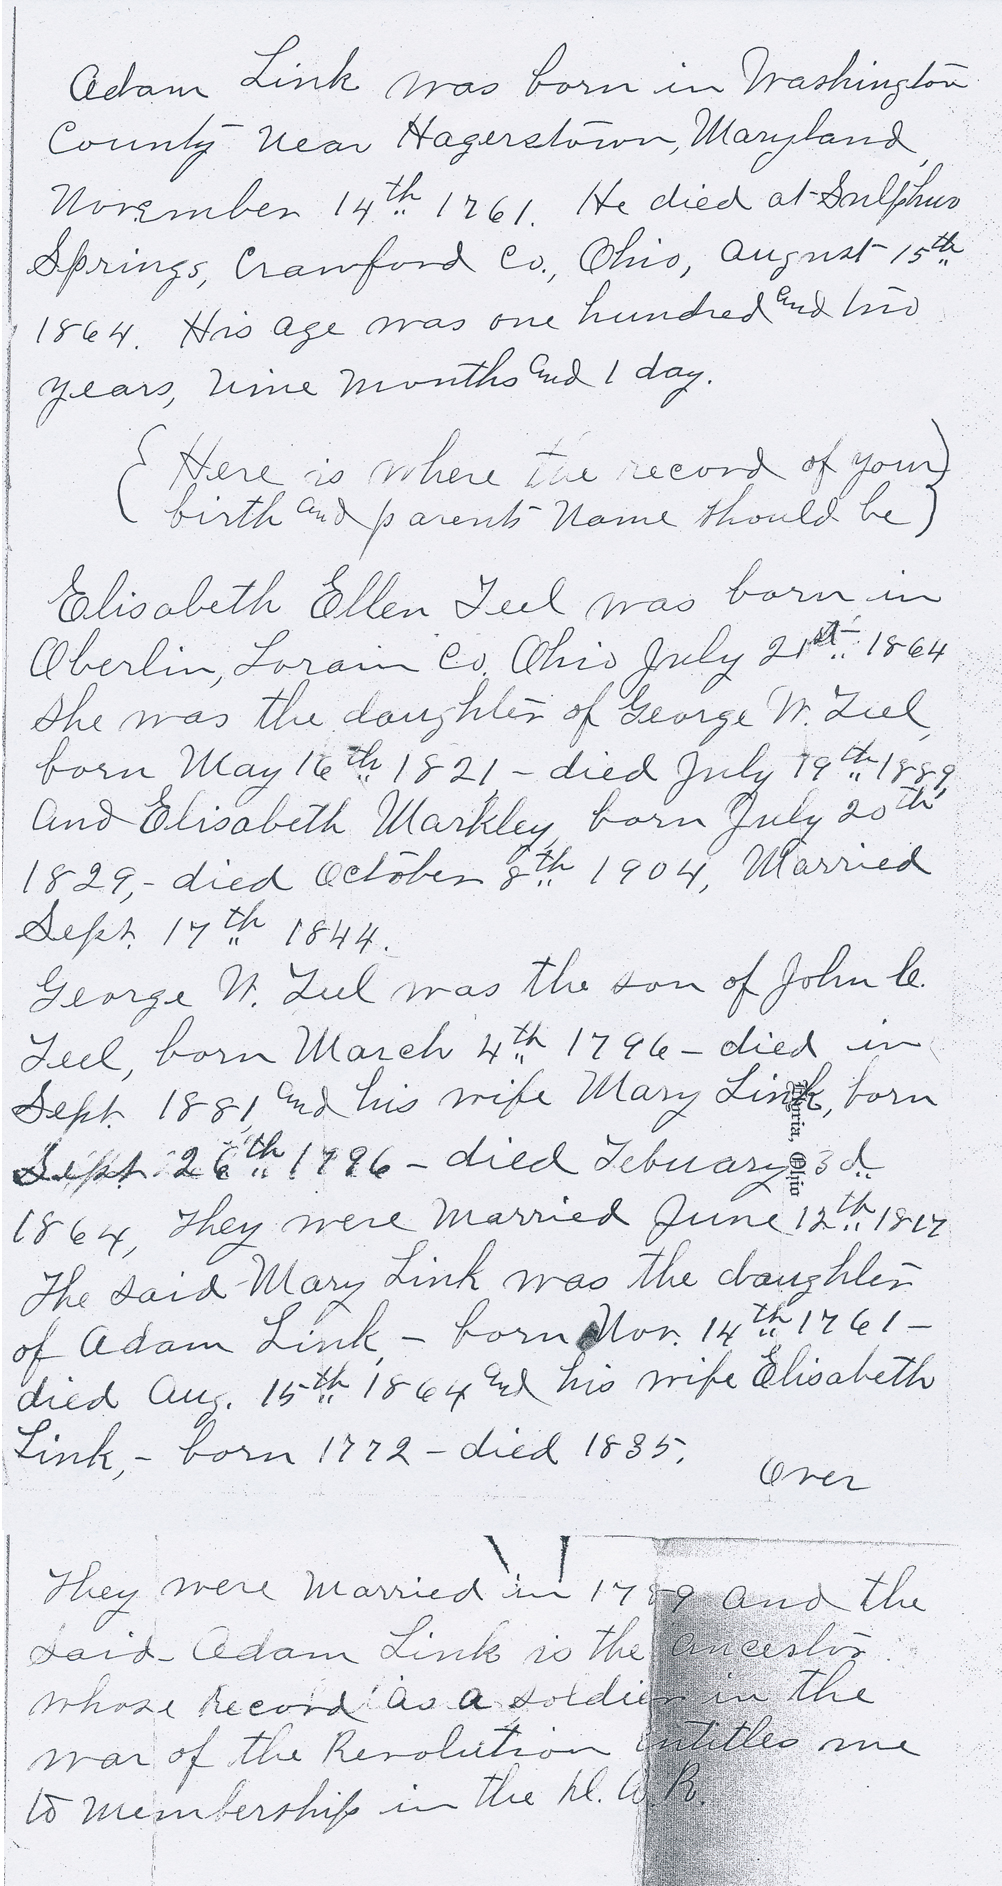 Adam Link was born in Washington
County near Hagerstown, Maryland,
November 14th 1761. He died at Sulphur
Springs, Crawford Co., Ohio, August 15th
1864. His age was one hundred and two
years, nine months and 1 day.
(Here is where the record of your)
(birth and parents name should be)
Elisabeth Ellen Teel was born in
Oberlin, Lorain Co. Ohio July 21st 1864
She was the daughter of George W. Teel,
born May 16th 1821 - died July 19th 1889
and Elisabeth Markley, born July 20th
1829, - died October 8th 1904, Married
Sept. 17th 1844.
George W. Teel was the son of John C.
Teel, born March 4th 1796 - died in
Sept. 1881, and his wife Mary Link, born
Sept. 26th 1796 - died Febuary 3d
1864, They were married June 12th 1817
The said Mary Link was the daughter
of Adam Link, - born Nov. 14th 1761 -
died Aug. 15th 1864 and his wife Elisabeth
Link, - born 1772 - died 1835.
Over
Elyria, Ohio
They were married in 1789 and the
said Adam Link is the ancestor
whose record as a soldier in the
war of the Revolution intitles me
to membership in the D. A. R.